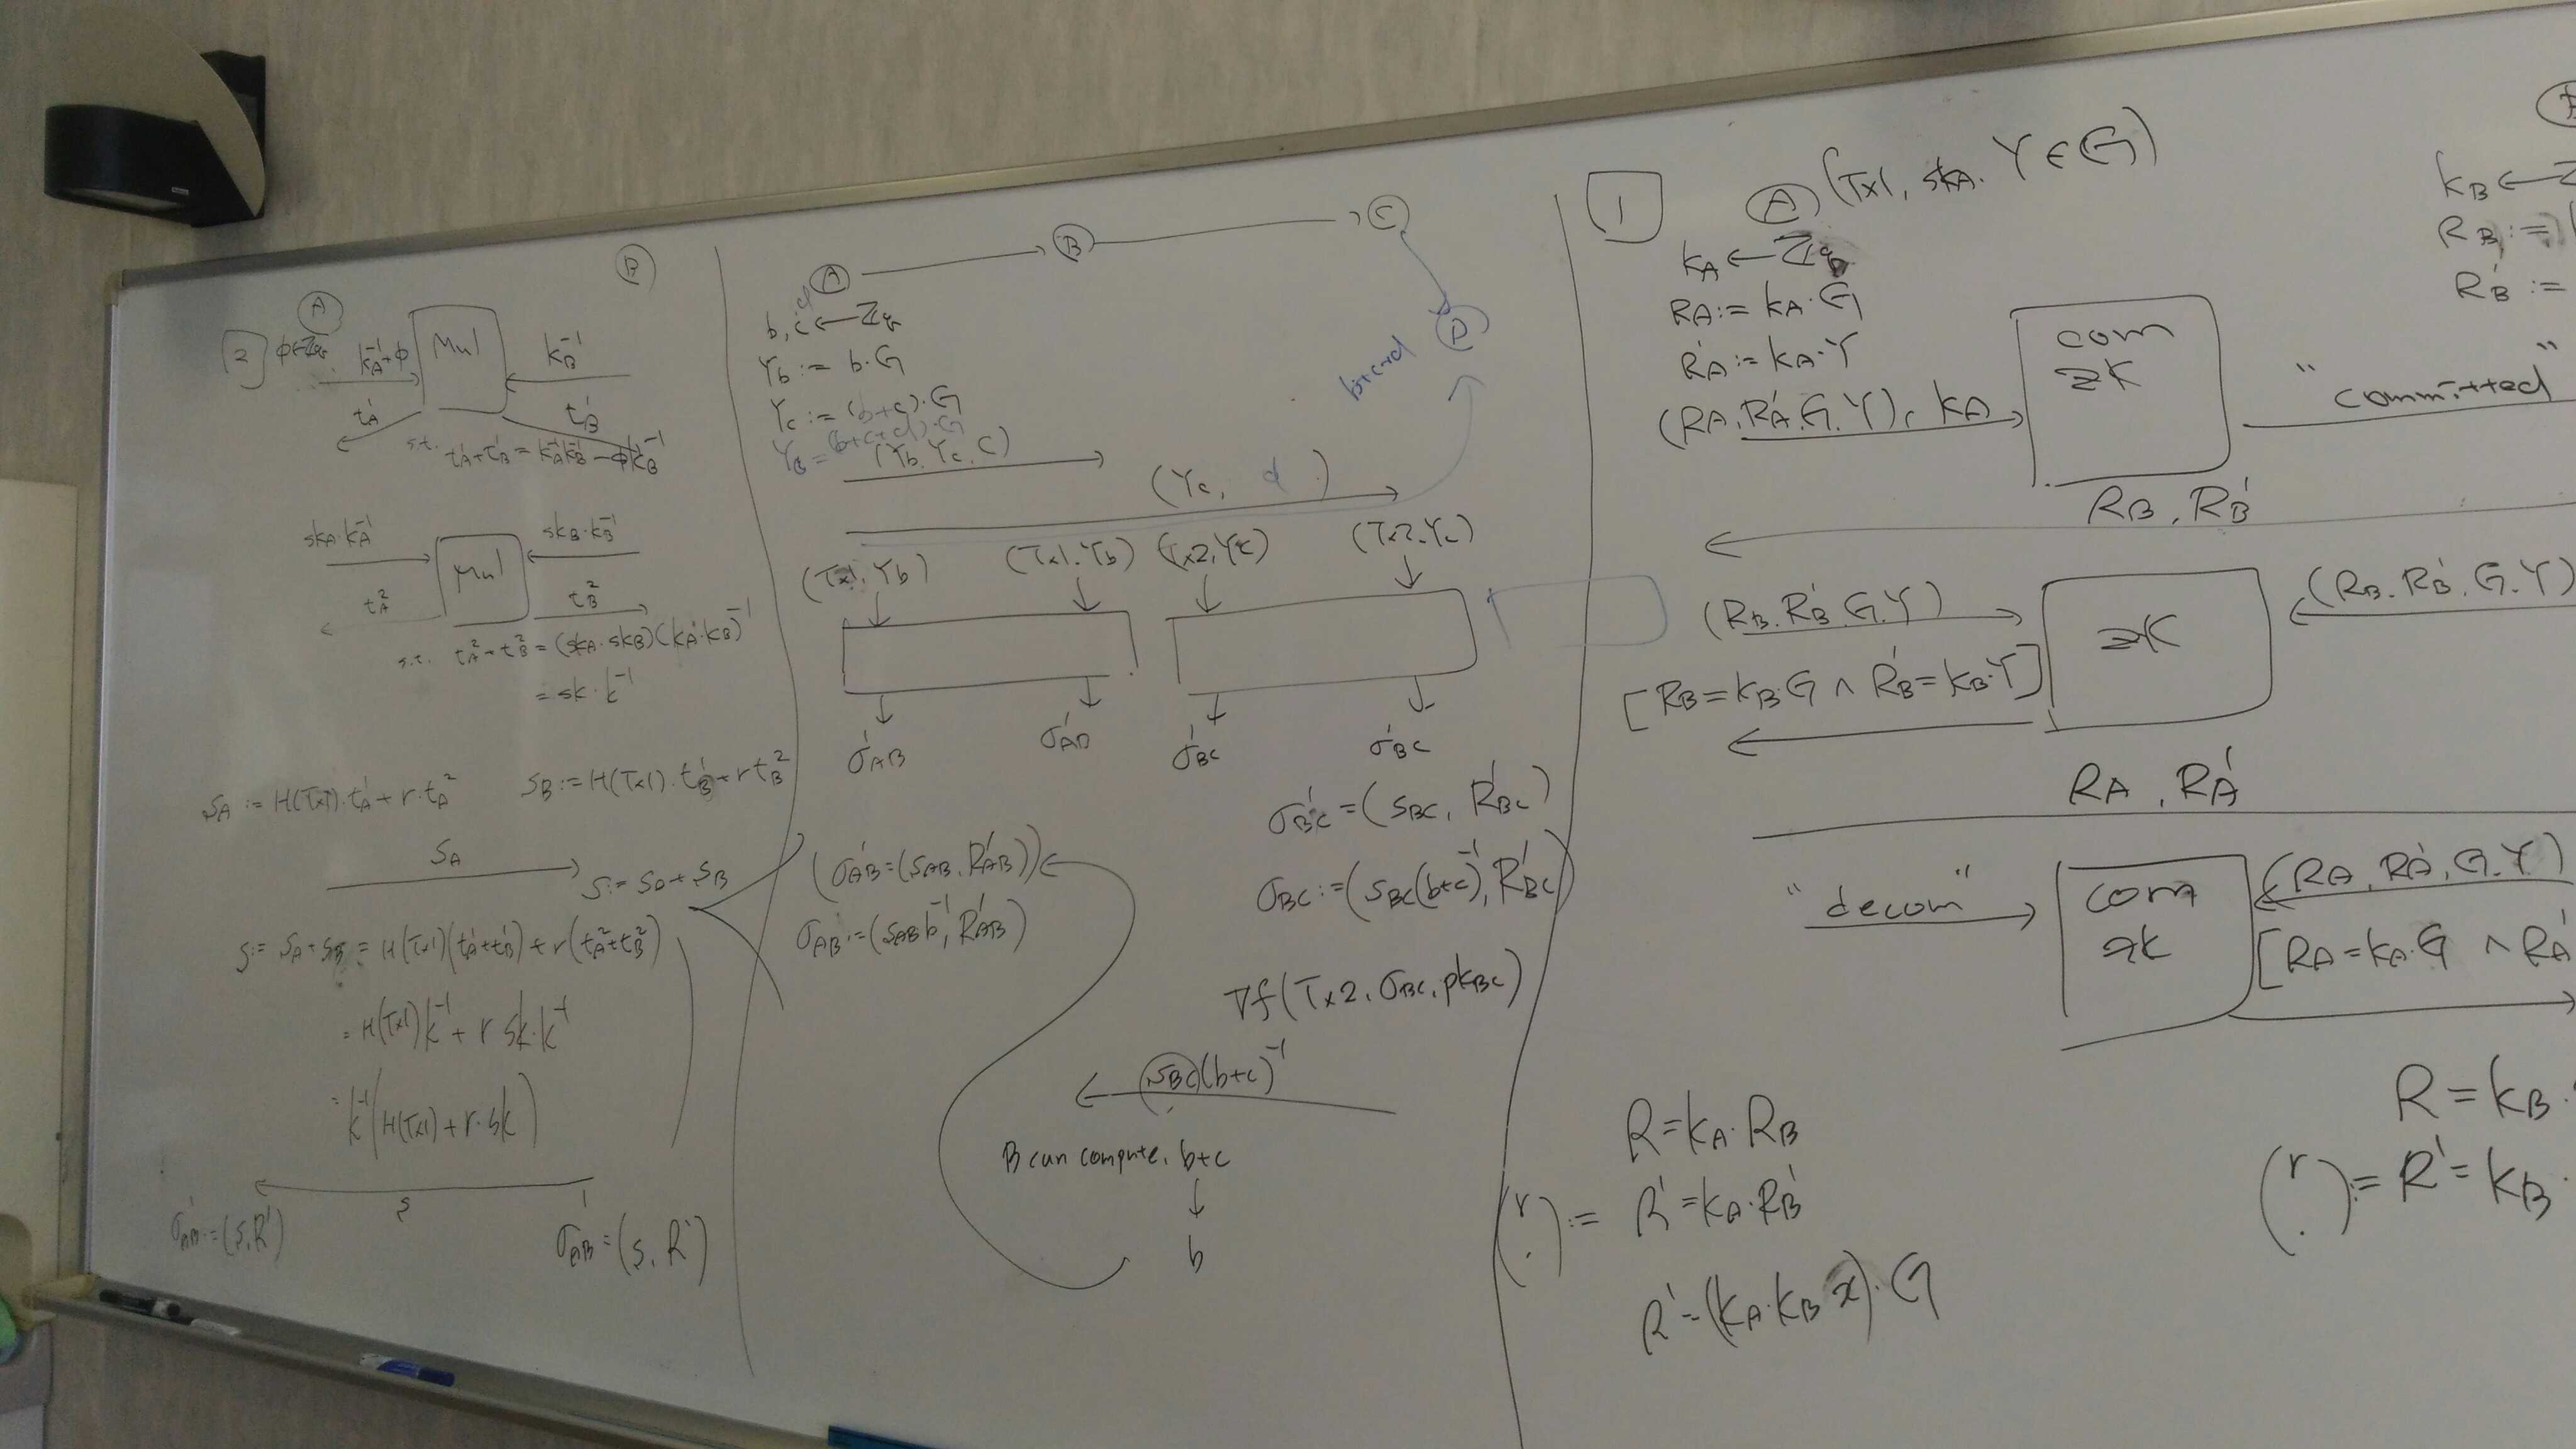 2
A
B
ϕ←Zq
kA⁻¹+ϕ
Mul
kB⁻¹
tA¹
tB¹
s.t. tA¹+tB¹ = kA⁻¹kB⁻¹ - ϕkB⁻¹
skA·kA⁻¹
Mul
skB·kB⁻¹
tA²
tB²
s.t. tA²+tB² = (skA·skB)(kA·kB)⁻¹
= sk·k⁻¹
SA := H(Tx1)·tA¹ + r·tA²
SB := H(Tx1)·tB¹ + r tB²
SA
S := SA + SB
S := SA + SB = H(Tx1)(tA¹+tB¹) + r(tA²+tB²)
= H(Tx1)k⁻¹ + r sk·k⁻¹
= k⁻¹(H(Tx1) + r·sk)
s
σ'AB := (s, R')
σ'AB = (s, R')
A
B
C
D
b, c, d ← Zq
Yb := b·G
Yc := (b+c)·G
= (b+c+d)·G
b+c+d
(Yb, Yc, c)
(Yc, d)
(Tx1, Yb)
(Tx1, Yb)
(Tx2, Yc)
(Tx2, Yc)
σ'AB
σ'AB
σ'BC
σ'BC
σ'BC = (SBC, R'BC)
(σ'AB = (SAB, R'AB))
σBC := (SBC(b+c)⁻¹, R'BC)
σAB := (SAB b⁻¹, R'AB)
Vf(Tx2, σBC, pkBC)
SBC(b+c)⁻¹
B can compute. b+c
↓
b
1
A (Tx1, skA. Y∈G)
kA ← Zq
RA := kA·G
R'A := kA·Y
(RA, R'A, G, Y), kA
com
zk
"committed"
kB ←
RB :=
R'B :=
RB, R'B
(RB, R'B, G, Y)
zk
(RB, R'B, G, Y)
[RB = kB·G ∧ R'B = kB·Y]
RA, R'A
"decom"
com
zk
(RA, R'A, G, Y)
[RA = kA·G ∧ R'A
R = kA·RB
R = kB·
(r, ·) := R' = kA·R'B
(r, ·) := R' = kB·
R' = (kA·kB x)·G